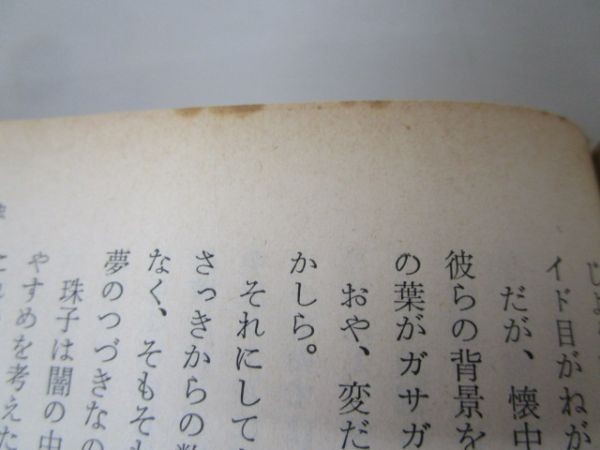 イド目がねが
だが、懐中
彼らの背景を
の葉がガサガ
おや、変だ
かしら。
それにして
さっきからの
なく、そもそも
夢のつづきなの
珠子は闇の中
やすめを考えた